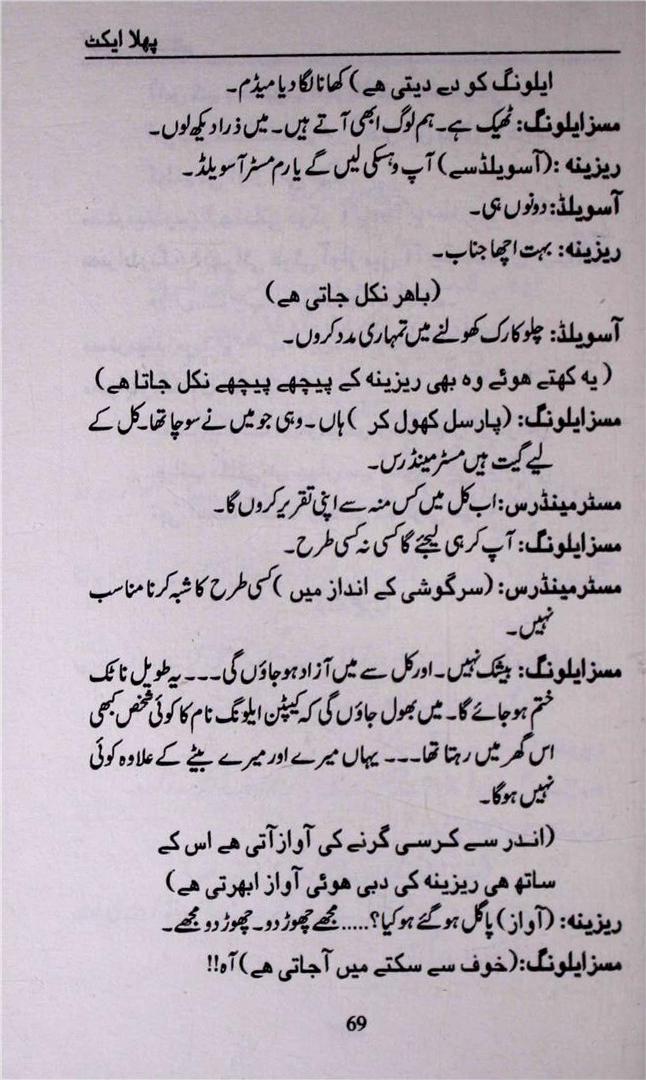 پہلا ایکٹ
ایلونگ کو دے دیتی ھے) کھانا لگا دیا میڈم۔
مسز ایلونگ: ٹھیک ہے۔ ہم لوگ ابھی آتے ہیں۔ میں ذرا دیکھ لوں۔
ریزینہ :(آسویلڈسے) آپ وہسکی لیں گے یا رم مسٹر آسویلڈ۔
آسویلڈ: دونوں ہی۔
ریزینہ: بہت اچھا جناب۔
(باھر نکل جاتی ھے)
آسویلڈ: چلو کارک کھولنے میں تمہاری مدد کروں۔
( یہ کھتے ھوئے وہ بھی ریزینہ کے پیچھے پیچھے نکل جاتا ھے)
مسز ایلونگ: (پارسل کھول کر ) ہاں۔ وہی جو میں نے سوچا تھا۔ کل کے
لیے گیت ہیں مسٹر مینڈرس۔
مسٹر مینڈرس: اب کل میں کس منہ سے اپنی تقریر کروں گا۔
مسز ایلونگ: آپ کر ہی لیجئے گا کسی نہ کسی طرح۔
مسٹر مینڈرس: (سرگوشی کے انداز میں ) کسی طرح کا شبہ کرنا مناسب
نہیں۔
مسز ایلونگ: بیشک نہیں۔ اور کل سے میں آزاد ہو جاؤں گی۔۔۔ یہ طویل ناٹک
ختم ہو جائے گا۔ میں بھول جاؤں گی کہ کیپٹن ایلونگ نام کا کوئی شخص کبھی
اس گھر میں رہتا تھا۔۔۔ یہاں میرے اور میرے بیٹے کے علاوہ کوئی
نہیں ہوگا۔
(اندر سے کرسی گرنے کی آواز آتی ھے اس کے
ساتھ ھی ریزینہ کی دبی ھوئی آواز ابھرتی ھے)
ریزینہ: (آواز) پاگل ہو گئے ہو کیا؟..... مجھے چھوڑ دو۔ چھوڑ دو مجھے۔
مسز ایلونگ:(خوف سے سکتے میں آجاتی ھے) آہ!!
69